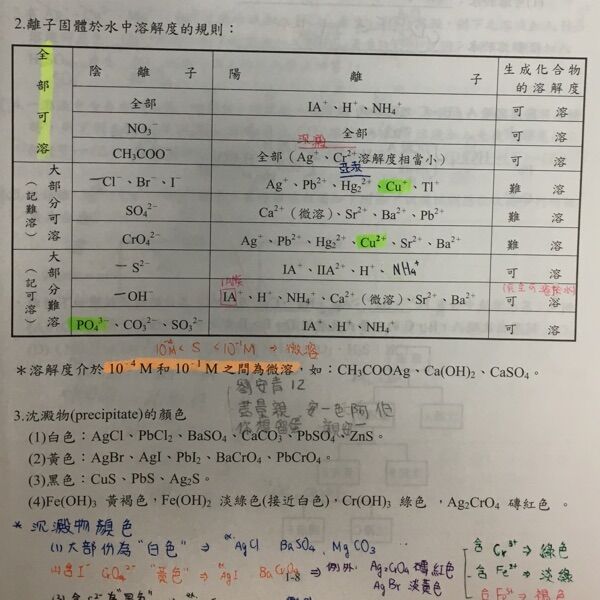 2.離子固體於水中溶解度的規則：
陰離子 陽離子 生成化合物的溶解度
全部可溶
全部 IA⁺、H⁺、NH₄⁺ 可溶
NO₃⁻ 全部 可溶
沉澱
CH₃COO⁻ 全部（Ag⁺、Cr²⁺溶解度相當小） 可溶
大部分可溶（記難溶）
亞汞
Cl⁻、Br⁻、I⁻ Ag⁺、Pb²⁺、Hg₂²⁺、Cu⁺、Tl⁺ 難溶
SO₄²⁻ Ca²⁺（微溶）、Sr²⁺、Ba²⁺、Pb²⁺ 難溶
CrO₄²⁻ Ag⁺、Pb²⁺、Hg₂²⁺、Cu²⁺、Sr²⁺、Ba²⁺ 難溶
大部分難溶（記可溶）
S²⁻ IA⁺、IIA²⁺、H⁺、NH₄⁺ 可溶
OH⁻ IA⁺、H⁺、NH₄⁺、Ca²⁺（微溶）、Sr²⁺、Ba²⁺ 可溶
PO₄³⁻、CO₃²⁻、SO₃²⁻ IA⁺、H⁺、NH₄⁺ 可溶
10⁻⁴M < S < 10⁻¹M ⇒ 微溶
＊溶解度介於 10⁻⁴ M 和 10⁻¹ M 之間為微溶，如：CH₃COOAg、Ca(OH)₂、CaSO₄。
3.沈澱物(precipitate)的顏色
(1)白色：AgCl、PbCl₂、BaSO₄、CaCO₃、PbSO₄、ZnS。
(2)黃色：AgBr、AgI、PbI₂、BaCrO₄、PbCrO₄。
(3)黑色：CuS、PbS、Ag₂S。
(4)Fe(OH)₃ 黃褐色，Fe(OH)₂ 淡綠色(接近白色)，Cr(OH)₃ 綠色，Ag₂CrO₄ 磚紅色。
* 沉澱物顏色
(1)大部份為"白色" ⇒ ex. AgCl BaSO₄ MgCO₃
含 Cr³⁺ ⇒ 綠色
(2)含 I⁻ CrO₄²⁻ "黃色" ⇒ ex. AgI BaCrO₄ ⇒ 例外: Ag₂CrO₄ 磚紅色
含 Fe²⁺ ⇒ 淡綠
1-8
AgBr 淡黃色
含 Fe³⁺ ⇒ 褐色